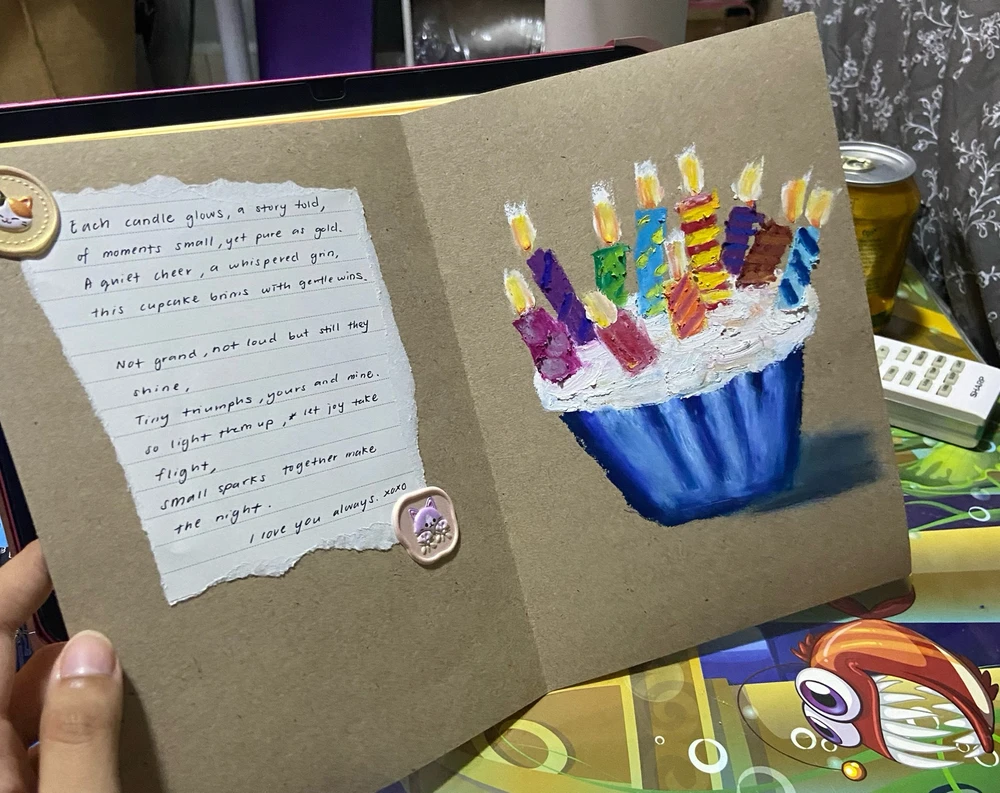 Each candle glows, a story told,
of moments small, yet pure as gold.
A quiet cheer, a whispered grin,
this cupcake brims with gentle wins.
Not grand, not loud but still they
shine,
Tiny triumphs, yours and mine.
so light them up, let joy take
flight,
small sparks together make
the night.
I love you always. xoxo
SHARP